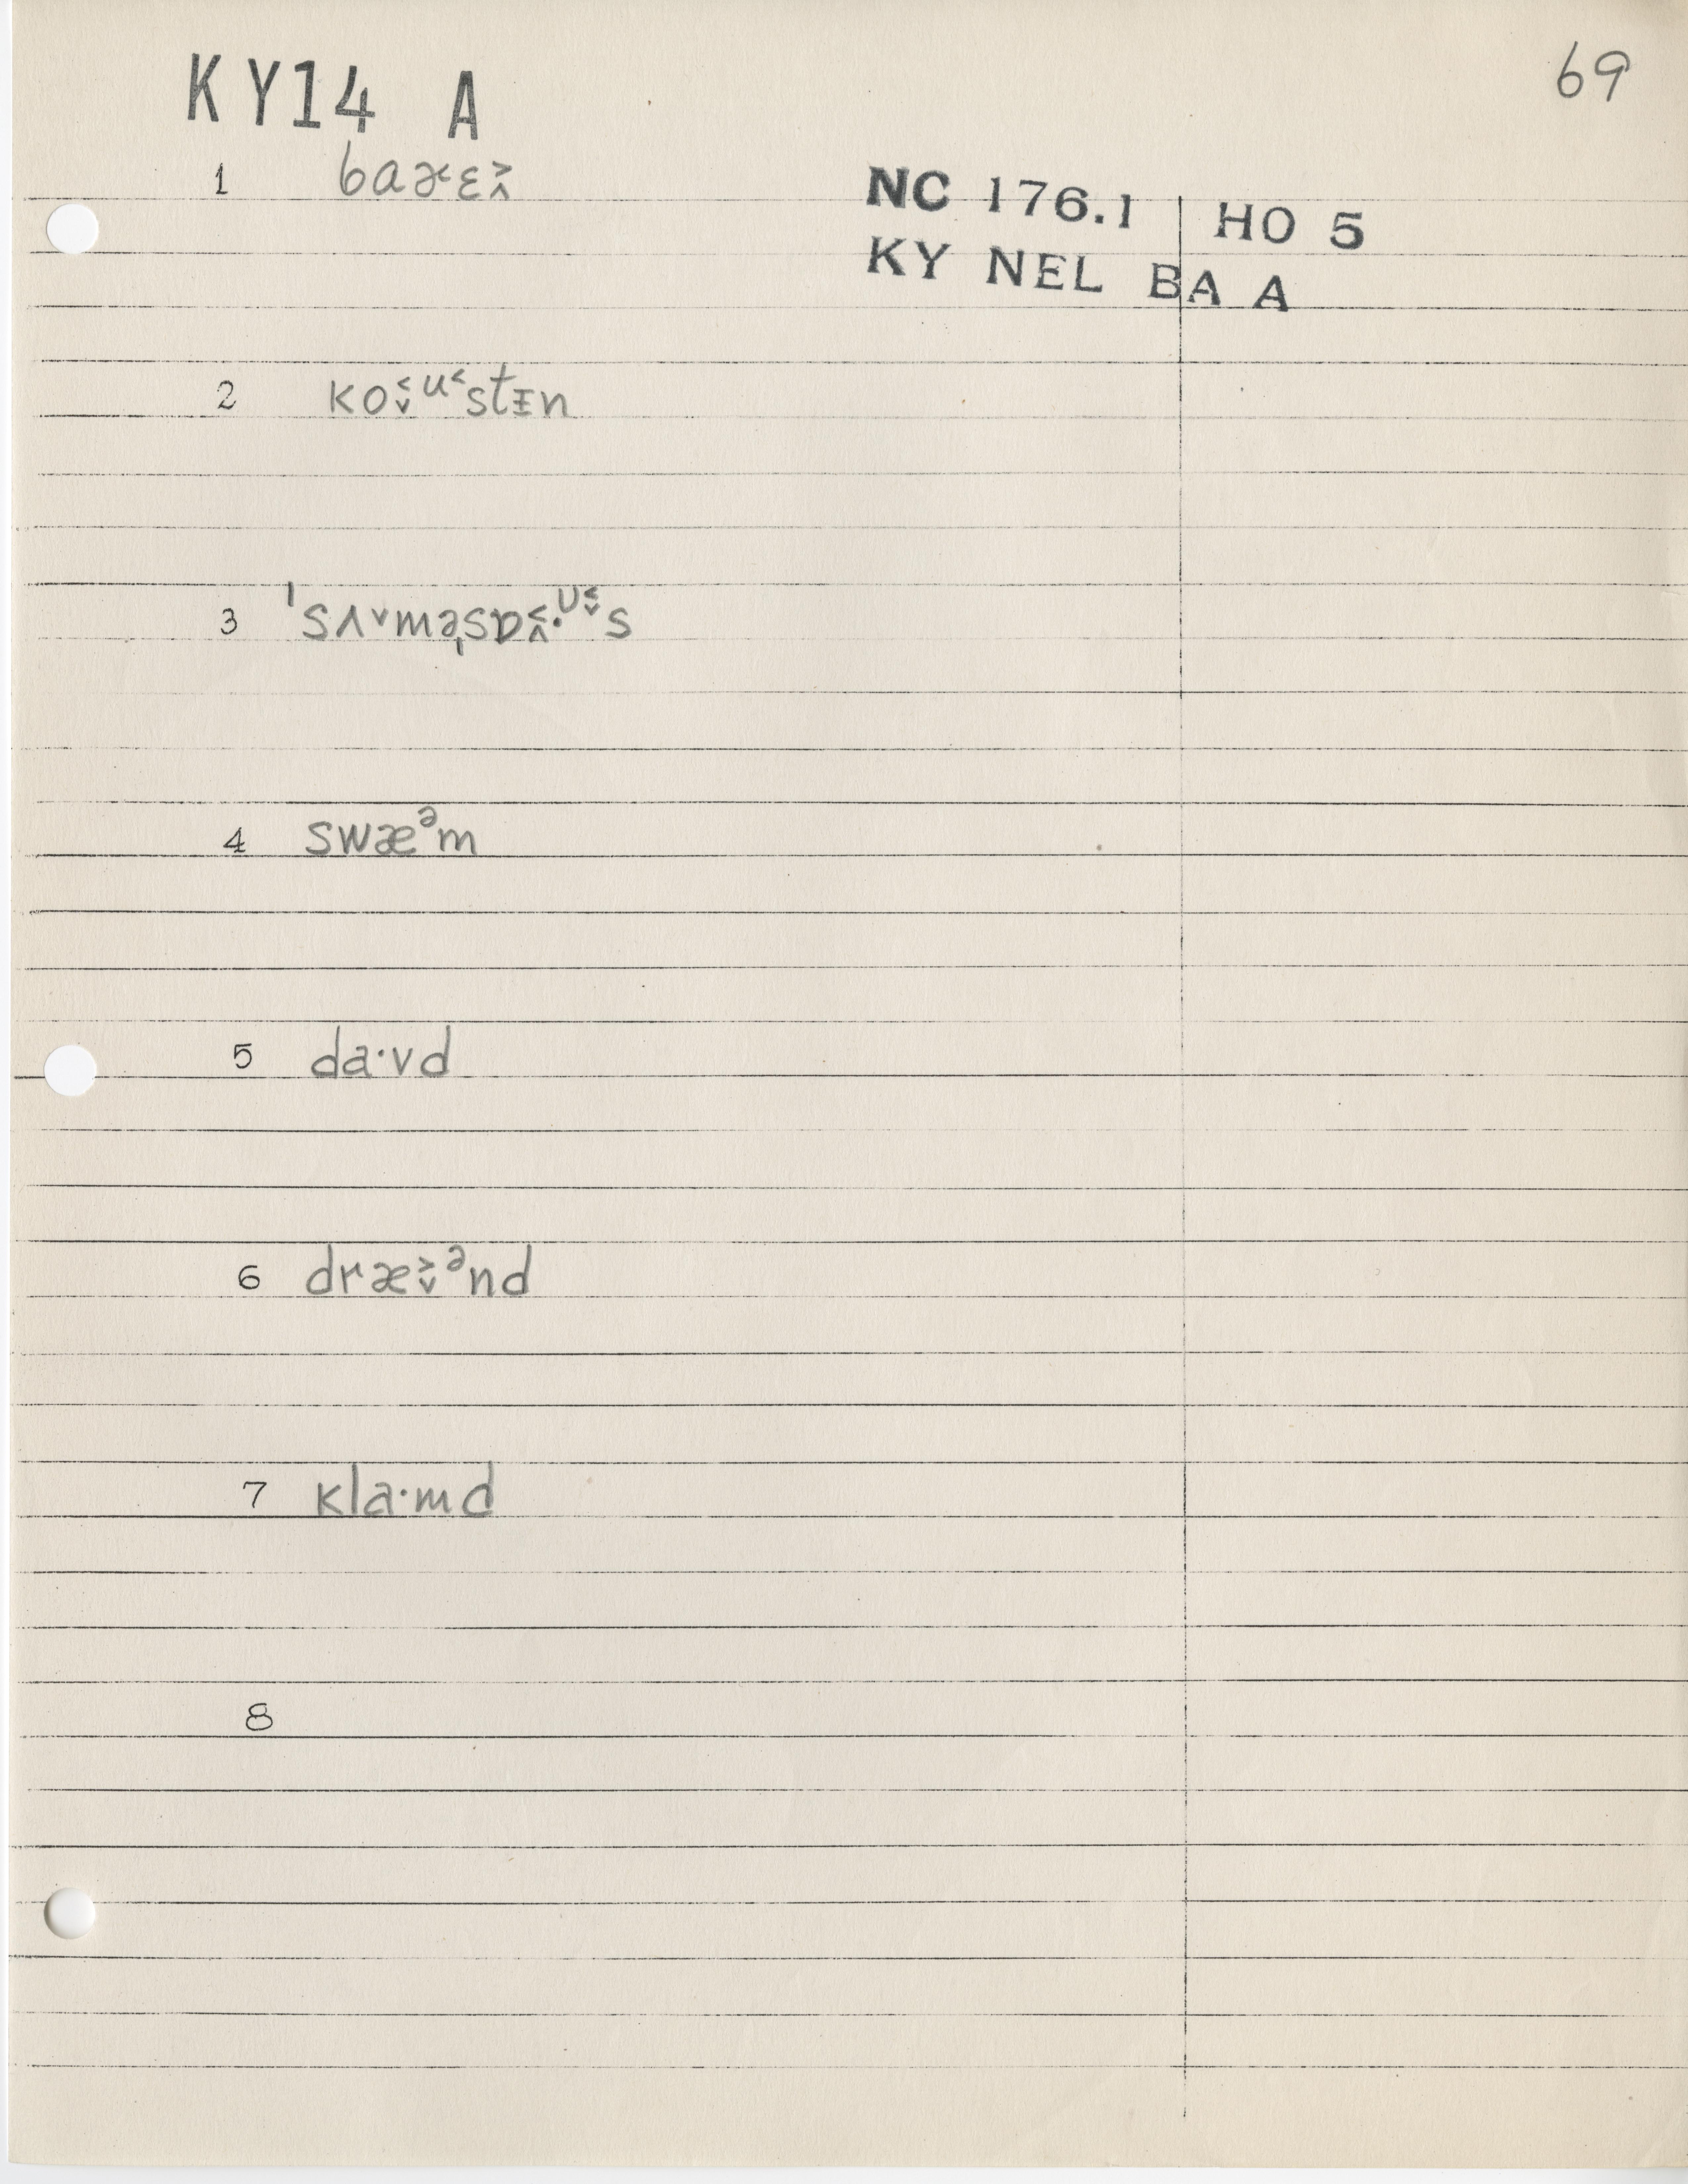 KY14 A
69
1 baɚ˂ɛ˃˄
NC 176.1 | HO 5
KY NEL BA A
2 ko˂˅ᵘ˂stɪ̵n
3 ˈsʌ˅məˌsɒ˂˄·ᶷ˂˅s
4 swæᵊm
5 da·vd
6 dræ˃˅ᵊnd
7 kla·md
8